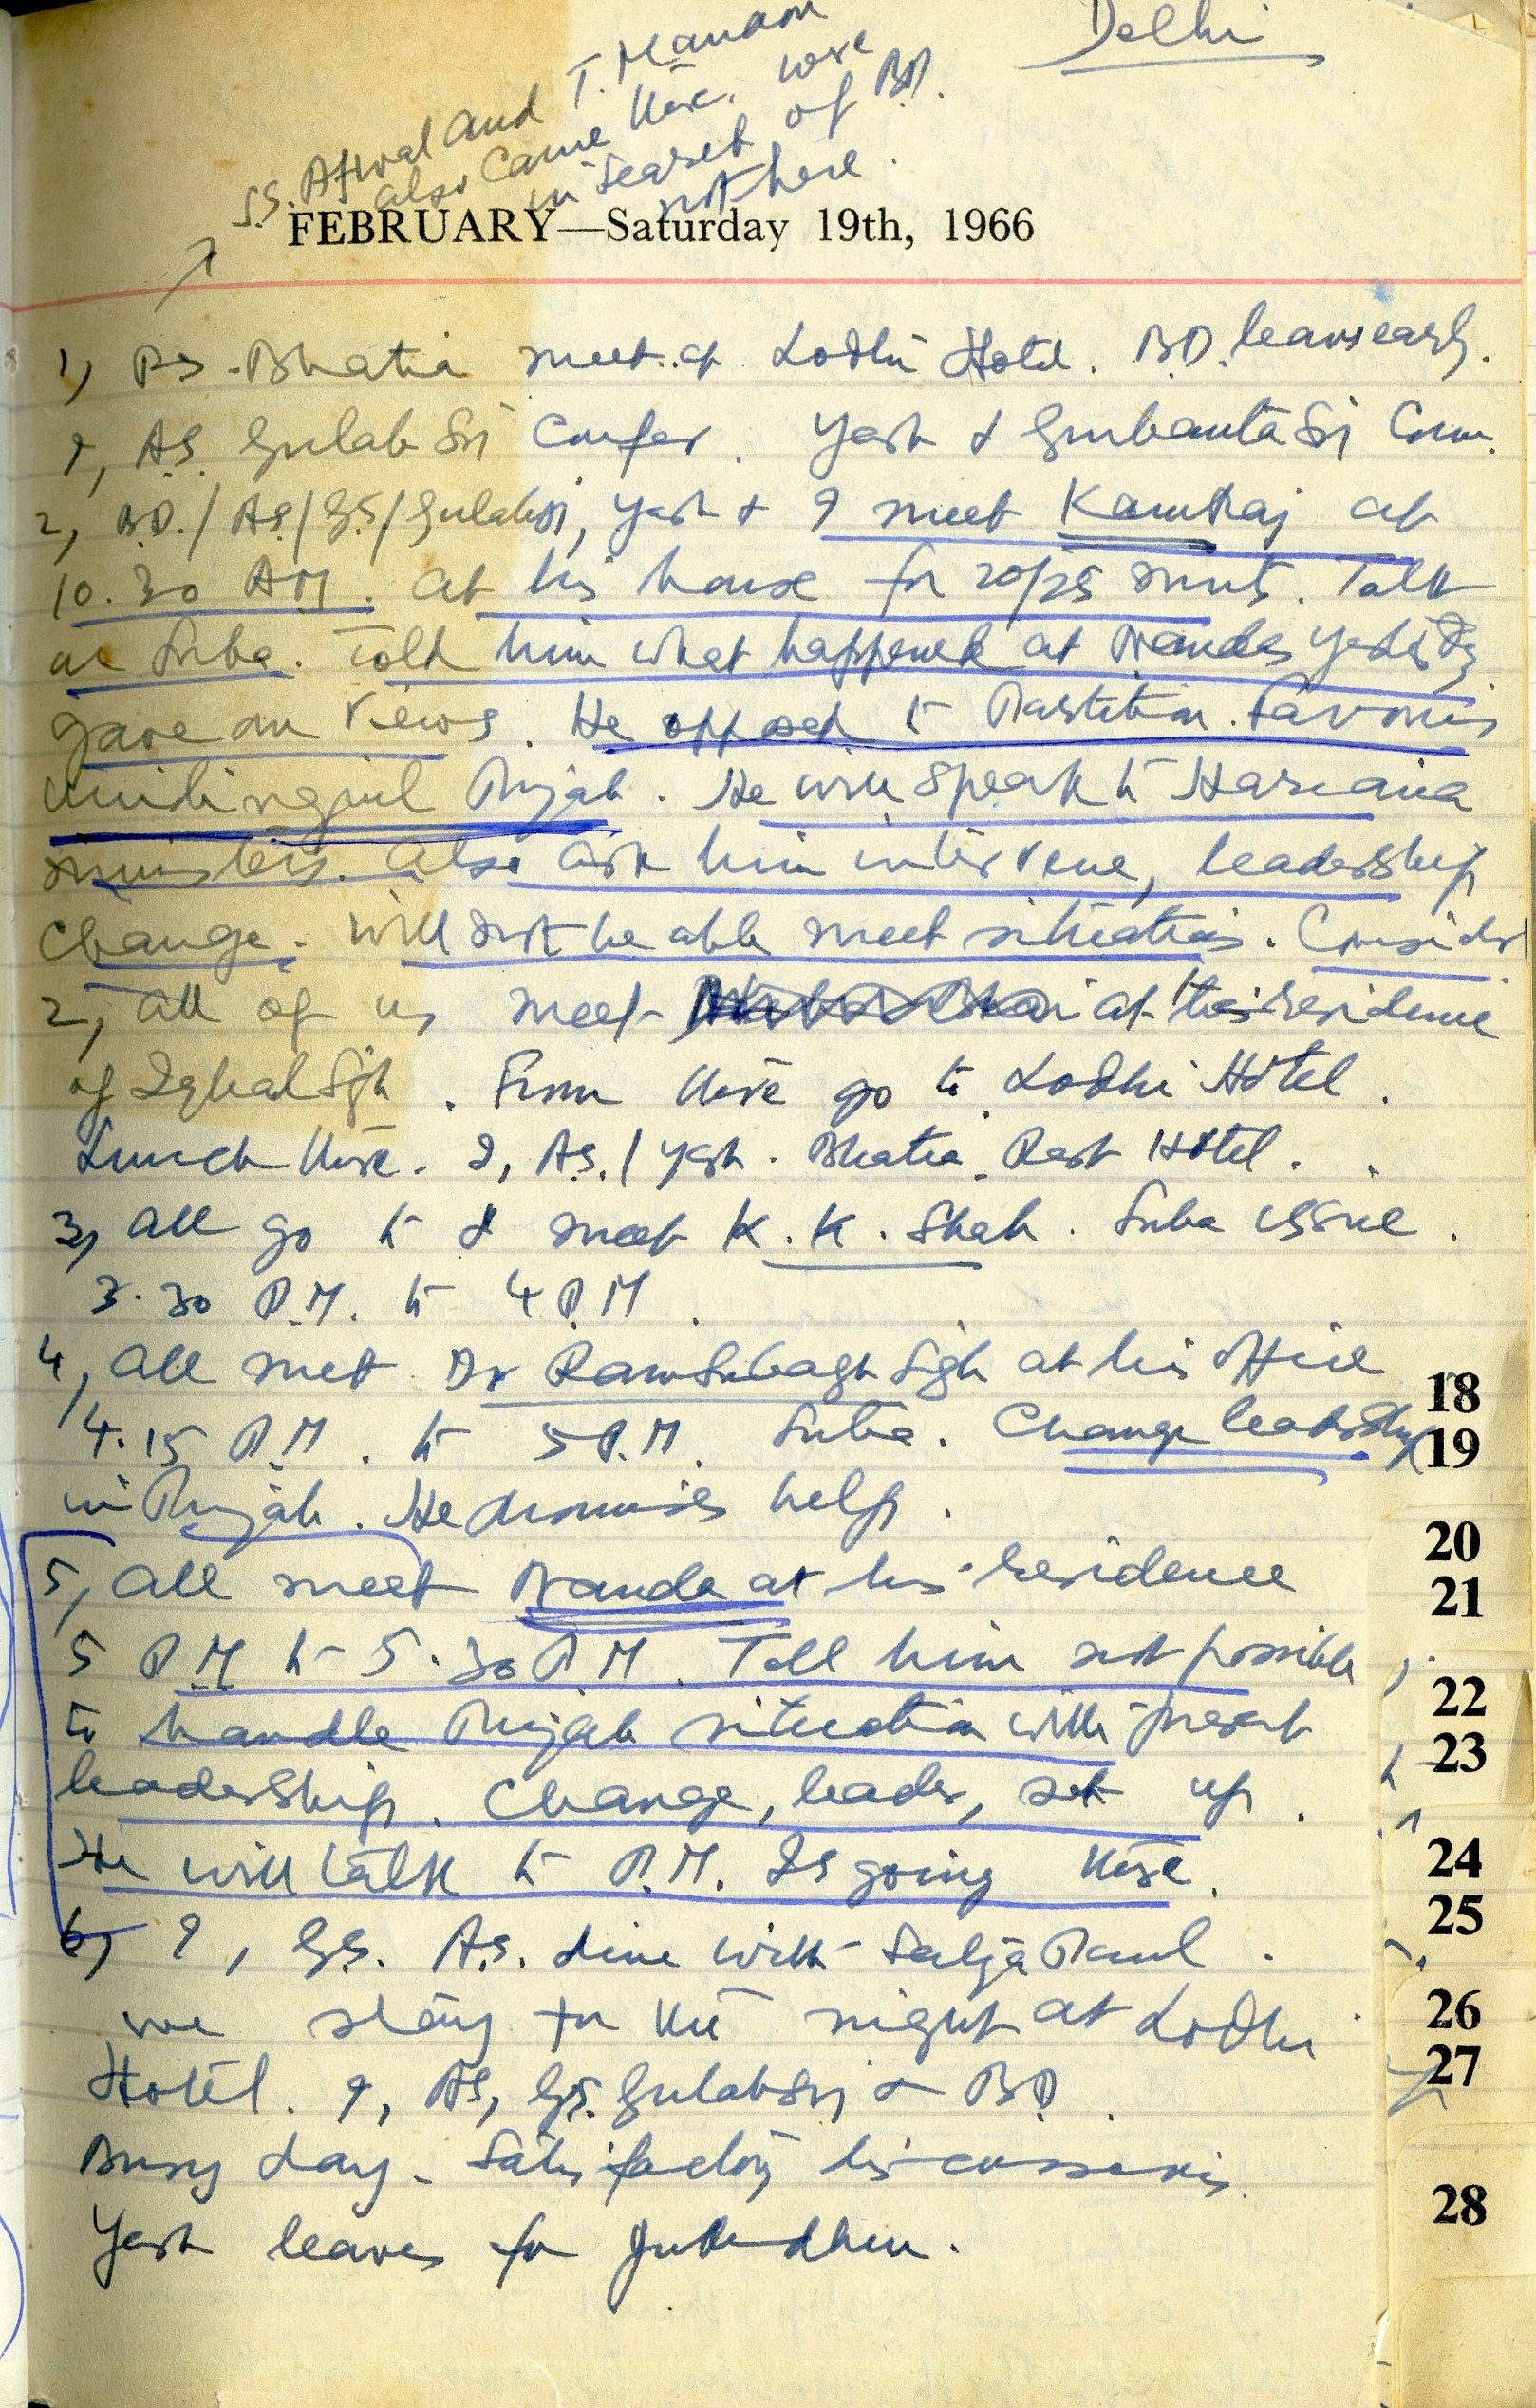 Delhi
S.S. Atwal and T. Manam
also came there. were
in search of B.D.
not here.
FEBRUARY—Saturday 19th, 1966
1, RS. Bhatia meet at Lodhi Hotel. B.D. leaves early.
I, AS. Gulab Sri Confer. Yash & Gurbanta Sri Come.
2, B.D./AS/GS/Gulab Sri, Yash & I meet Kamraj at
10.30 AM. at his house for 20/25 mnts. Talk
on Suba. Told him what happened at Nandas yesterday
gave our views. He opposed to Partition. Favours
Punjab. He will speak to Hariana
ministers. Also ask him intervene, leadership
change. Will not be able meet situation. Consider
2, All of us meet at the residence
of Iqbal Sgh. From there go to Lodhi Hotel.
Lunch there. I, AS./Yash. Bhatia. Rest Hotel.
3, All go to & meet K.K. Shah. Suba issue.
3.30 P.M. to 4 P.M.
4, All met Dr Ram Subagh Sgh at his office
4.15 P.M. to 5 P.M. Suba. Change leadership
in Punjab. He promises help.
5, All meet Nanda at his residence
5 PM to 5.30 P.M. Tell him not possible
to handle Punjab situation with present
leadership. Change, leader, set up.
He will talk to P.M. Is going there.
6, I, GS. AS. dine with Satya Paul.
We stay for the night at Lodhi
Hotel. I, AS, GS. Gulab Sri & BD.
Busy day. Satisfactory discussions.
Yash leaves for Jullundhur.
18
19
20
21
22
23
24
25
26
27
28